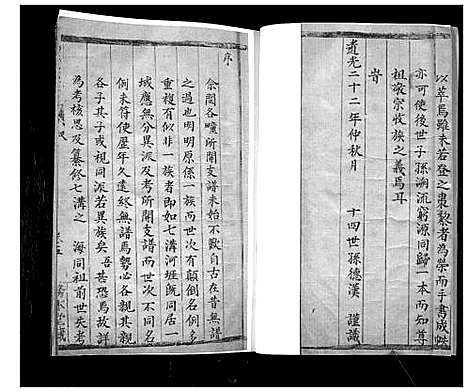 以萃焉雖未若登之棗棃者為榮而手書成帙
亦可使後世子孫溯流窮源同歸一本而知尊
祖敬宗收族之義焉耳
旹
道光二十二年仲秋月
十四世孫德漢 謹識
序
余閱各疃所開支譜未始不歎自古在昔無譜
之過也明明原係一族而世次有顛倒名例多
重複有似非一族者即如七溝河堐氈同居一
域應無分異派及考所開支譜而世次不同名
例未符使歷年久遠終無譜焉勢必各親其親
各子其子或視同派若異族矣吾甚恐焉故詳
為考核思及纂修七溝之 海同祖前世失考